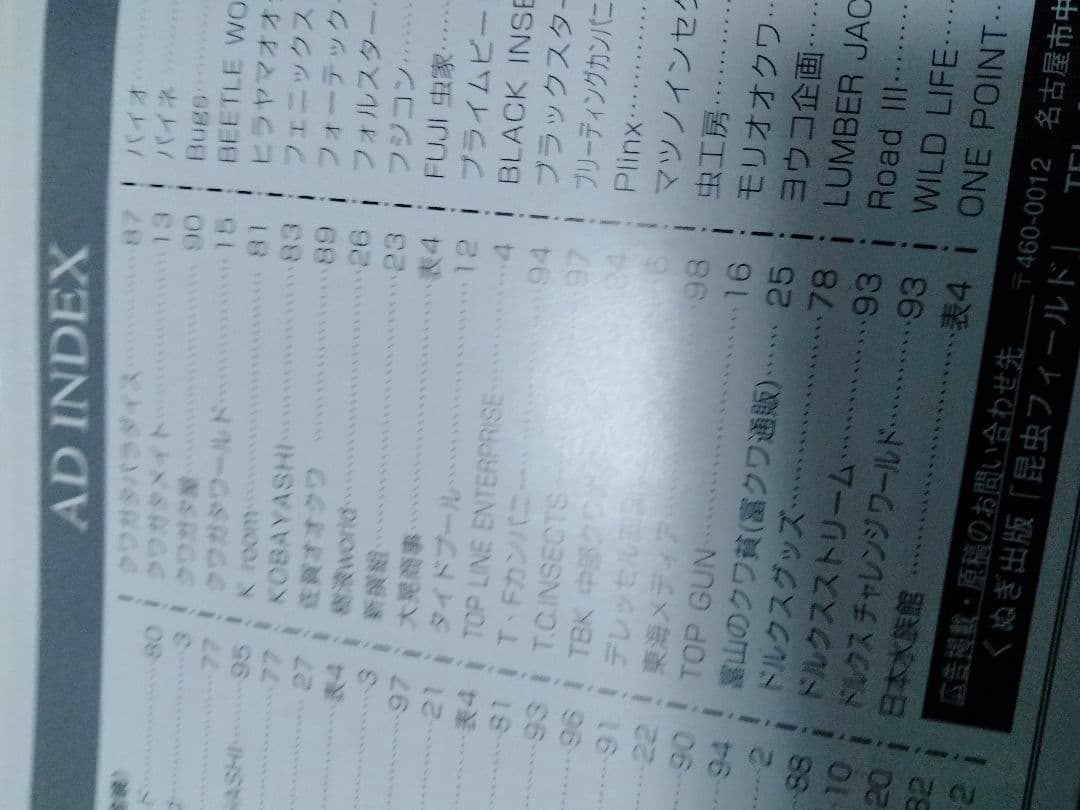 AD INDEX
80
3
77
ASHI 95
77
27
表4
3
97
21
表4
81
93
96
91
22
90
94
2
88
10
20
82
2
クワガタパラダイス 87
クワガタメイト 13
クワガタ屋 90
クワガタワールド 15
K room 81
KOBAYASHI 83
佐賀オオクワ 89
樹液world 26
新撰組 23
大尾商事 表4
タイドプール 12
TOP LINE ENTERPRISE 4
T・Fカンパニー 94
T.C.INSECTS 97
TBK 中部クワ
テレッセル
東海メディア 98
TOP GUN 16
富山のクワ貧(富クワ通販) 25
ドルクスグッズ 78
ドルクスストリーム 93
ドルクスチャレンジワールド 93
日本水族館 表4
バイオ
パイネ
Bugs
BEETLE WO
ヒラヤマオオ
フェニックス
フォーテック
フォルスター
フジコン
FUJI 虫家
プライムビー
BLACK INSE
ブラックスター
ブリーディングカンパニ
Plinx
マツノインセク
虫工房
モリオオクワ
ヨウコ企画
LUMBER JAC
Road III
WILD LIFE
ONE POINT
広告掲載・原稿のお問い合わせ先
くぬぎ出版「昆虫フィールド」
〒460-0012 名古屋市中
TEL